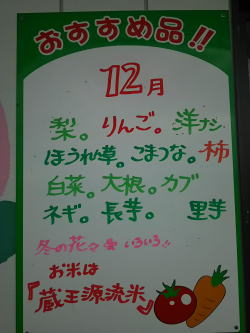 おすすめ品!!
12月
梨。りんご。洋ナシ
ほうれん草。こまつな。柿
白菜。大根。カブ
ネギ。長芋。里芋
冬の花々 いろいろ!!
お米は
『蔵王源流米』